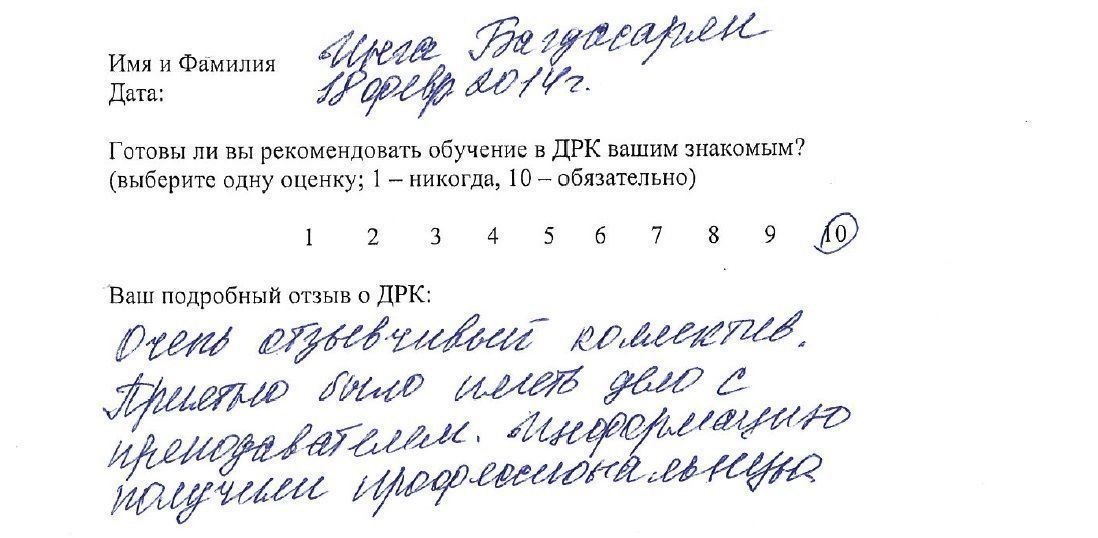 Имя и Фамилия Инга Багдасарян
Дата: 18 февр 2014г.
Готовы ли вы рекомендовать обучение в ДРК вашим знакомым?
(выберите одну оценку; 1 – никогда, 10 – обязательно)
1 2 3 4 5 6 7 8 9 10
Ваш подробный отзыв о ДРК:
Очень отзывчивый коллектив.
Приятно было иметь дело с
преподавателем. Информацию
получили